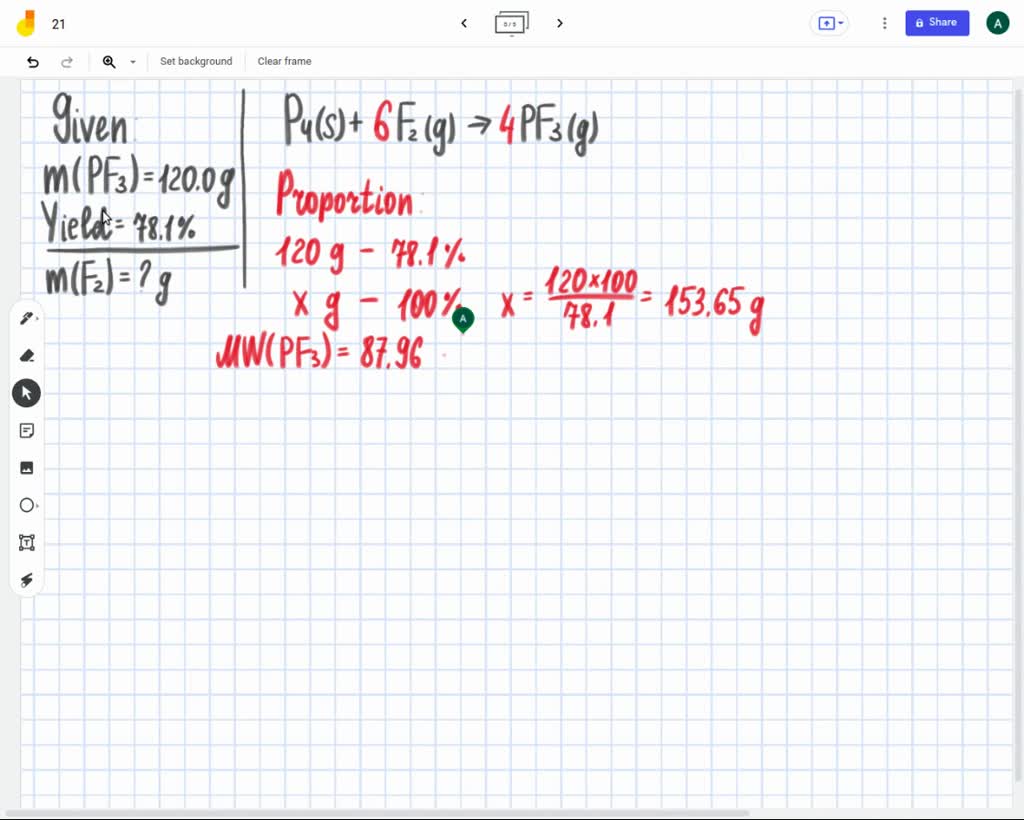 21
5 / 5
Share
A
Set background
Clear frame
Given:
m(PF₃) = 120.0 g
Yield = 78.1%
m(F₂) = ? g
P₄(s) + 6F₂(g) → 4PF₃(g)
Proportion:
120 g - 78.1%
x g - 100%
x = 120×100/78.1 = 153.65 g
A
MW(PF₃) = 87.96